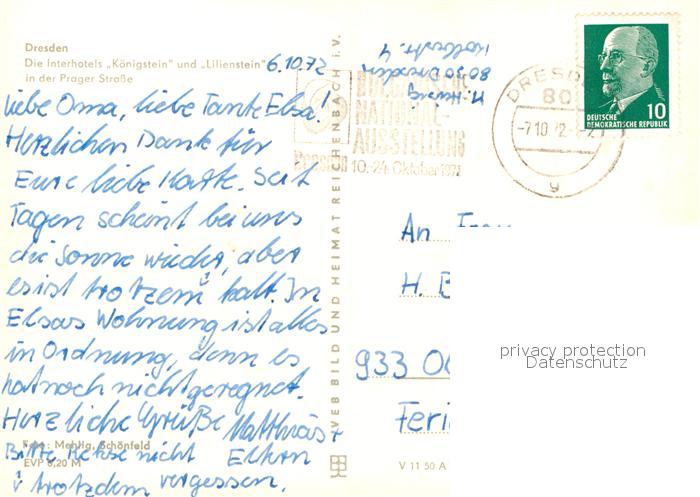 Dresden
Die Interhotels „Königstein" und „Lilienstein"
in der Prager Straße
6.10.72
Liebe Oma, liebe Tante Elsa!
Herzlichen Dank für
Eure liebe Karte. Seit
Tagen scheint bei uns
die Sonne wieder, aber
es ist trotzem kalt. In
Elsas Wohnung ist alles
in Ordnung, denn es
hat noch nicht geregnet.
Herzliche Grüße Matthias +
Eltern
Bitte Kekse nicht
vergessen.
i trotzdem
Foto: Mehlig, Schönfeld
EVP 0,20 M
VEB BILD UND HEIMAT REICHENBACH i. V.
V 11 50 A
8030 Dresden
NATIONAL-
AUSSTELLUNG
DRESDEN 10.-24. Oktober 1972
DRESDEN
80
-7.10.72
g
DEUTSCHE
DEMOKRATISCHE REPUBLIK
10
An Frau
H. B
933
privacy protection
Datenschutz